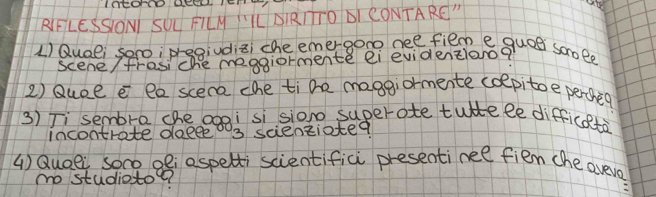 RIFLESSIONI SUL FILM "IL DIRITTO DI CONTARE"
1) Quali sono i pregiudizi che emergono nel film e quali sono le
scene/frasi che maggiormente li evidenziano?
2) Qual è la scena che ti ha maggiormente colpito e perché?
3) Ti sembra che oggi si siano superate tutte le difficoltà
incontrate dalle 3 scienziate?
4) Quali sono gli aspetti scientifici presenti nel film che aveva
mo studiato?